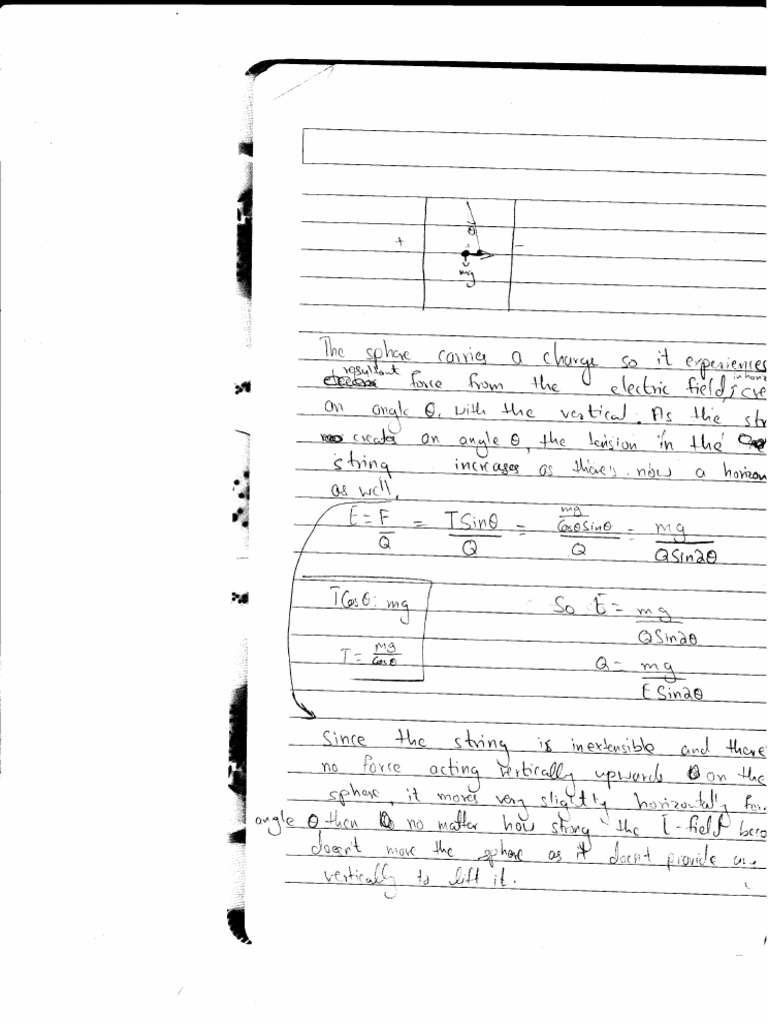 + θ -
mg
The sphere carries a charge so it experiences
resultant in horiz
force from the electric field, cre
an angle θ, with the vertical. As the str
creates an angle θ, the tension in the
string increases as there's now a horizon
as well.
E = F/Q = TSinθ/Q = mg/Cosθ Sinθ/Q = mg/QSin2θ
TCosθ = mg So E = mg/QSin2θ
T = mg/Cosθ Q = mg/ESin2θ
Since the string is inextensible and there
no force acting vertically upwards on the
sphere, it moves very slightly horizontally for
angle θ then no matter how strong the E-field beco
doesn't move the sphere as it doesn't provide
vertically to lift it.